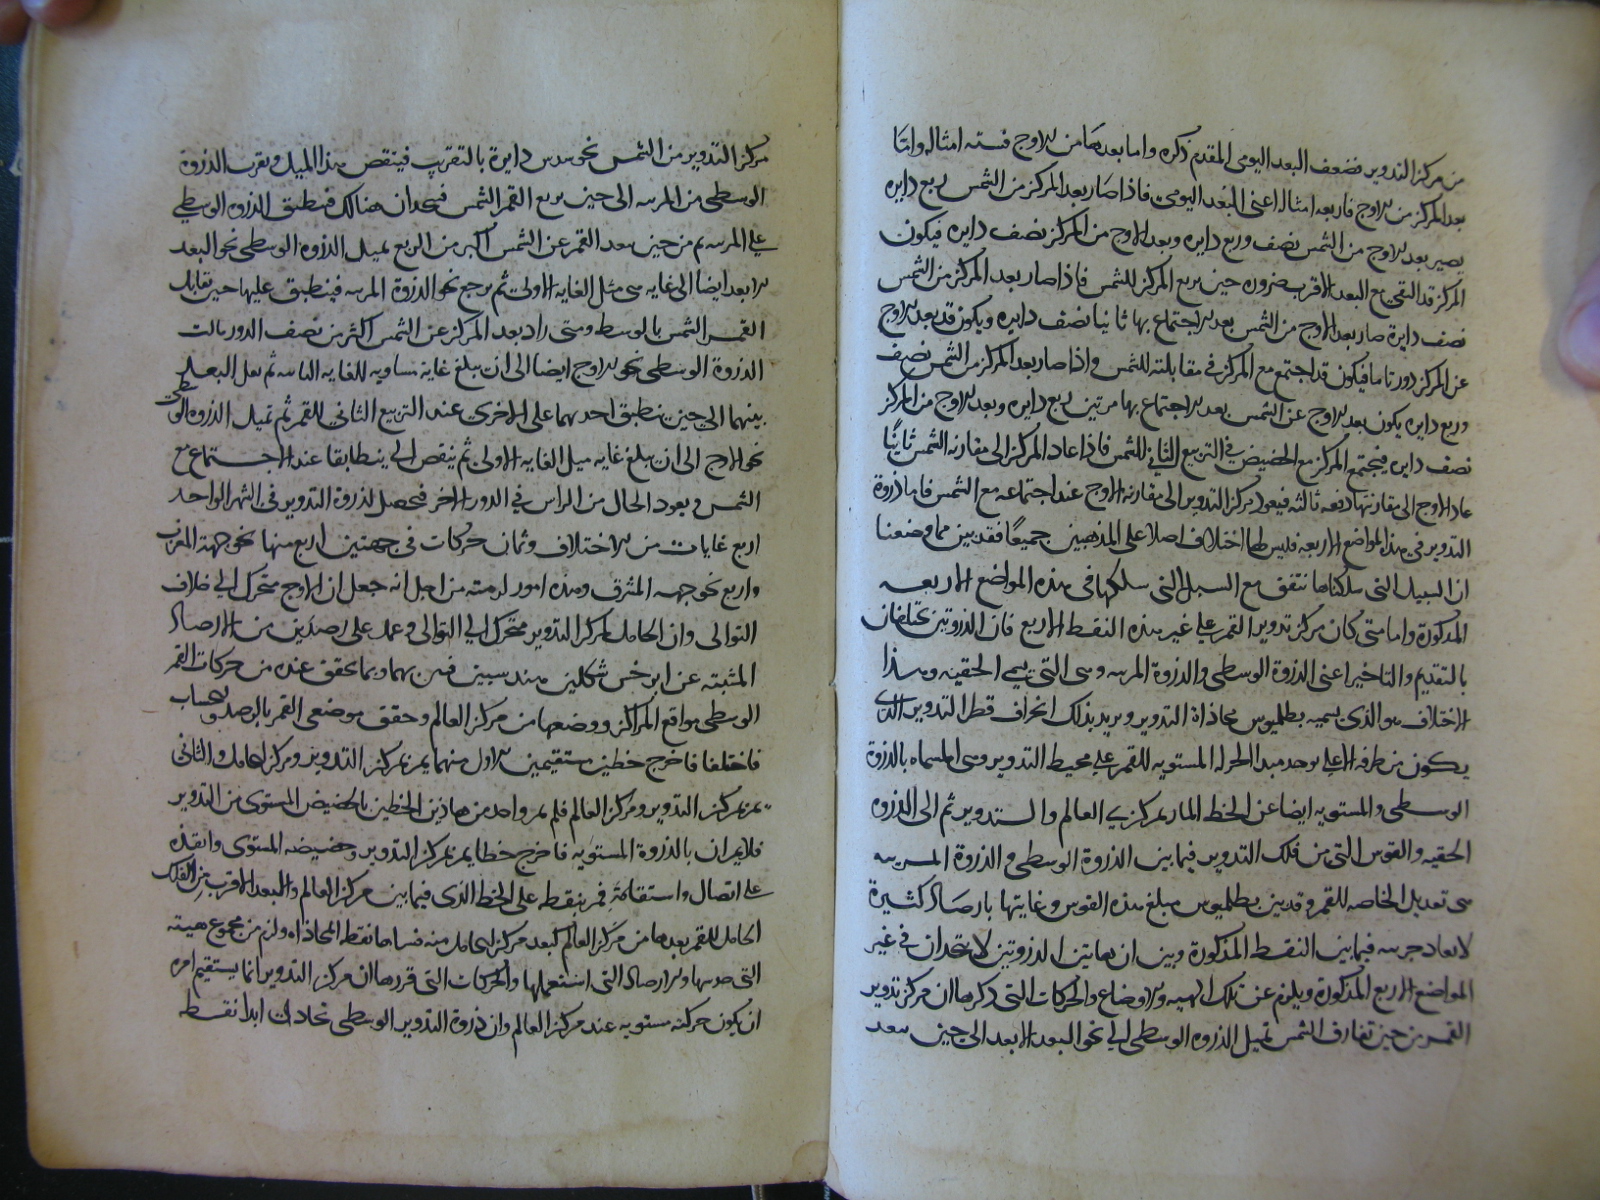 من مركز التدوير فضعف البعد اليومى المقدم ذكره واما بعدها من الاوج فستة امثاله واما
بعد المركز من الاوج فاربعه امثاله اعنى البعد اليومى فاذا صار بعد المركز من الشمس ربع دايره
يصير بعد الاوج من الشمس نصف وربع دايره وبعد الاوج من المركز نصف دايره فيكون
المركز قد التقى مع البعد الاقرب ضروره حين يربع المركز للشمس فاذا صار بعد المركز من الشمس
نصف دايرة صار بعد الاوج من الشمس بعد الاجتماع بها ثانيا نصف دايره ويكون قد بعد الاوج
عن المركز دورا تاما فيكون قد اجتمع مع المركز فى مقابلته للشمس واذا صار بعد المركز من الشمس نصف
وربع دايره يكون بعد الاوج عن الشمس بعد الاجتماع بها مرتين ربع دايره وبعد الاوج من المركز
نصف دايره فيجتمع المركز مع الحضيض فى التربيع الثانى للشمس فاذا عاد المركز الى مقارنه الشمس ثانيًا
عاد الاوج الى مقارنتها دفعه ثالثه فيعود مركز التدوير الى مقارنه الاوج عند اجتماعه مع الشمس فاما ذروة
التدوير فى هذه المواضع الاربعه فليس لها اختلاف اصلا على المذهبين جميعًا فقد بين مما وضعنا
ان السبيل التى سلكناها تتفق مع السبيل التى سلكها فى هذه المواضع الاربعه
المذكورة واما متى كان مركز تدوير القمر على غير هذه النقط الاربع فان الذروتين تختلفان
بالتقديم والتاخير اعنى الذروة الوسطى والذروة المرييه وهى التى الحقيه وهذا
الاختلاف هو الذى يسميه بطلميوس محاذاة التدوير ويريد بذلك انحراف قطر التدوير الذى
يكون من طرفه الاعلى يوجد مبدا الحركه المستويه للقمر على محيط التدوير وهى المسماه بالذروة
الوسطى والمستويه ايضا عن الخط المار بمركزى العالم والتدوير ثم الى الذروه
الحقيه والقوس التى من فلك التدوير فيما بين الذروة الوسطى والذروة المرييه
هى تعديل الخاصه للقمر وقد بين بطلميوس مبلغ هذه القوس وغايتها بارصاد كثيرة
لابعاد جزييه فيما بين النقط المذكورة وبين ان هاتين الذروتين لا يتحدان فى غير
المواضع الاربع المذكورة ويلزم عن تلك الهييه والاوضاع والحركات التى ذكرها ان مركز تدوير
القمر من حين تفارق الشمس تميل الذروه الوسطى الى نحو البعد الابعد الى حين يبعد
مركز التدوير من الشمس نحو سدس دايرة بالتقريب فينقص هذا الميل ويقرب الذروة
الوسطى من المرييه الى حين يربع القمر الشمس فيتحدان هنالك فينطبق الذروه الوسطى
على المرييه ثم من حين يبعد القمر عن الشمس اكبر من الربع تميل الذروه الوسطى نحو البعد
الابعد ايضا الى غايه هى مثل الغايه الاولى ثم يرجع نحو الذروة المرييه فينطبق عليها حين تقابل
القمر الشمس بالوسط ومتى زاد بعد المركز عن الشمس اكثر من نصف الدور مالت
الذروة الوسطى نحو الاوج ايضا الى ان يبلغ غاية مساويه للغايه الثانيه ثم يقل البعد
بينهما الى حين ينطبق احديهما على الاخرى عند التربيع الثانى للقمر ثم تميل الذروه الوسطى
نحو الاوج الى ان يبلغ غايه ميل الغايه الاولى ثم ينقص الى ينطابقا عند الاجتماع مع
الشمس ويعود الحال من الراس فى الدور الاخر فيحصل لذروة التدوير فى الشهر الواحد
اربع غايات من الاختلاف وثمان حركات فى جهتين اربع منها نحو جهة المغرب
واربع نحو جهه المشرق وهذه امور لزمته من اجل انه جعل ان الاوج متحرك الى خلاف
التوالى وان الحامل لمركز التدوير متحرك الى التوالى وعمد على رصدين من الارصاد
المثبته عن ابرخس شكلين هندسيين فبرهن بهما وبما تحقق عنده من حركات القمر
الوسطى مواقع المراكز ووضعها من مركز العالم وحقق موضعى القمر بالرصد وبحساب
فاختلفا فاخرج خطين مستقيمين الاول منهما يمر بمركز التدوير ومركز الحامل والثانى
يمر بمركز التدوير ومركز العالم فلم يمر واحد من هاذين الخطين بالحضيض المستوى من التدوير
فلا يمران بالذروة المستويه فاخرج خطا يمر بمركز التدوير وحضيضه المستوى وانفذه
على اتصال واستقامة فمر بنقطه على الخط الذى فيما بين مركز العالم والبعد الاقرب من الفلك
الحامل للقمر بعدها من مركز العالم كبعد مركز الحامل منه فسماها نقطه المحاذاه ولزم من مجموع هيئته
التى حدسها والارصاد التى استعملها والحركات التى قررها ان مركز التدوير انما يستقيم امره
ان يكون حركته مستويه عند مركز العالم وان ذروة التدوير الوسطى تحاذى ابدا نقطه